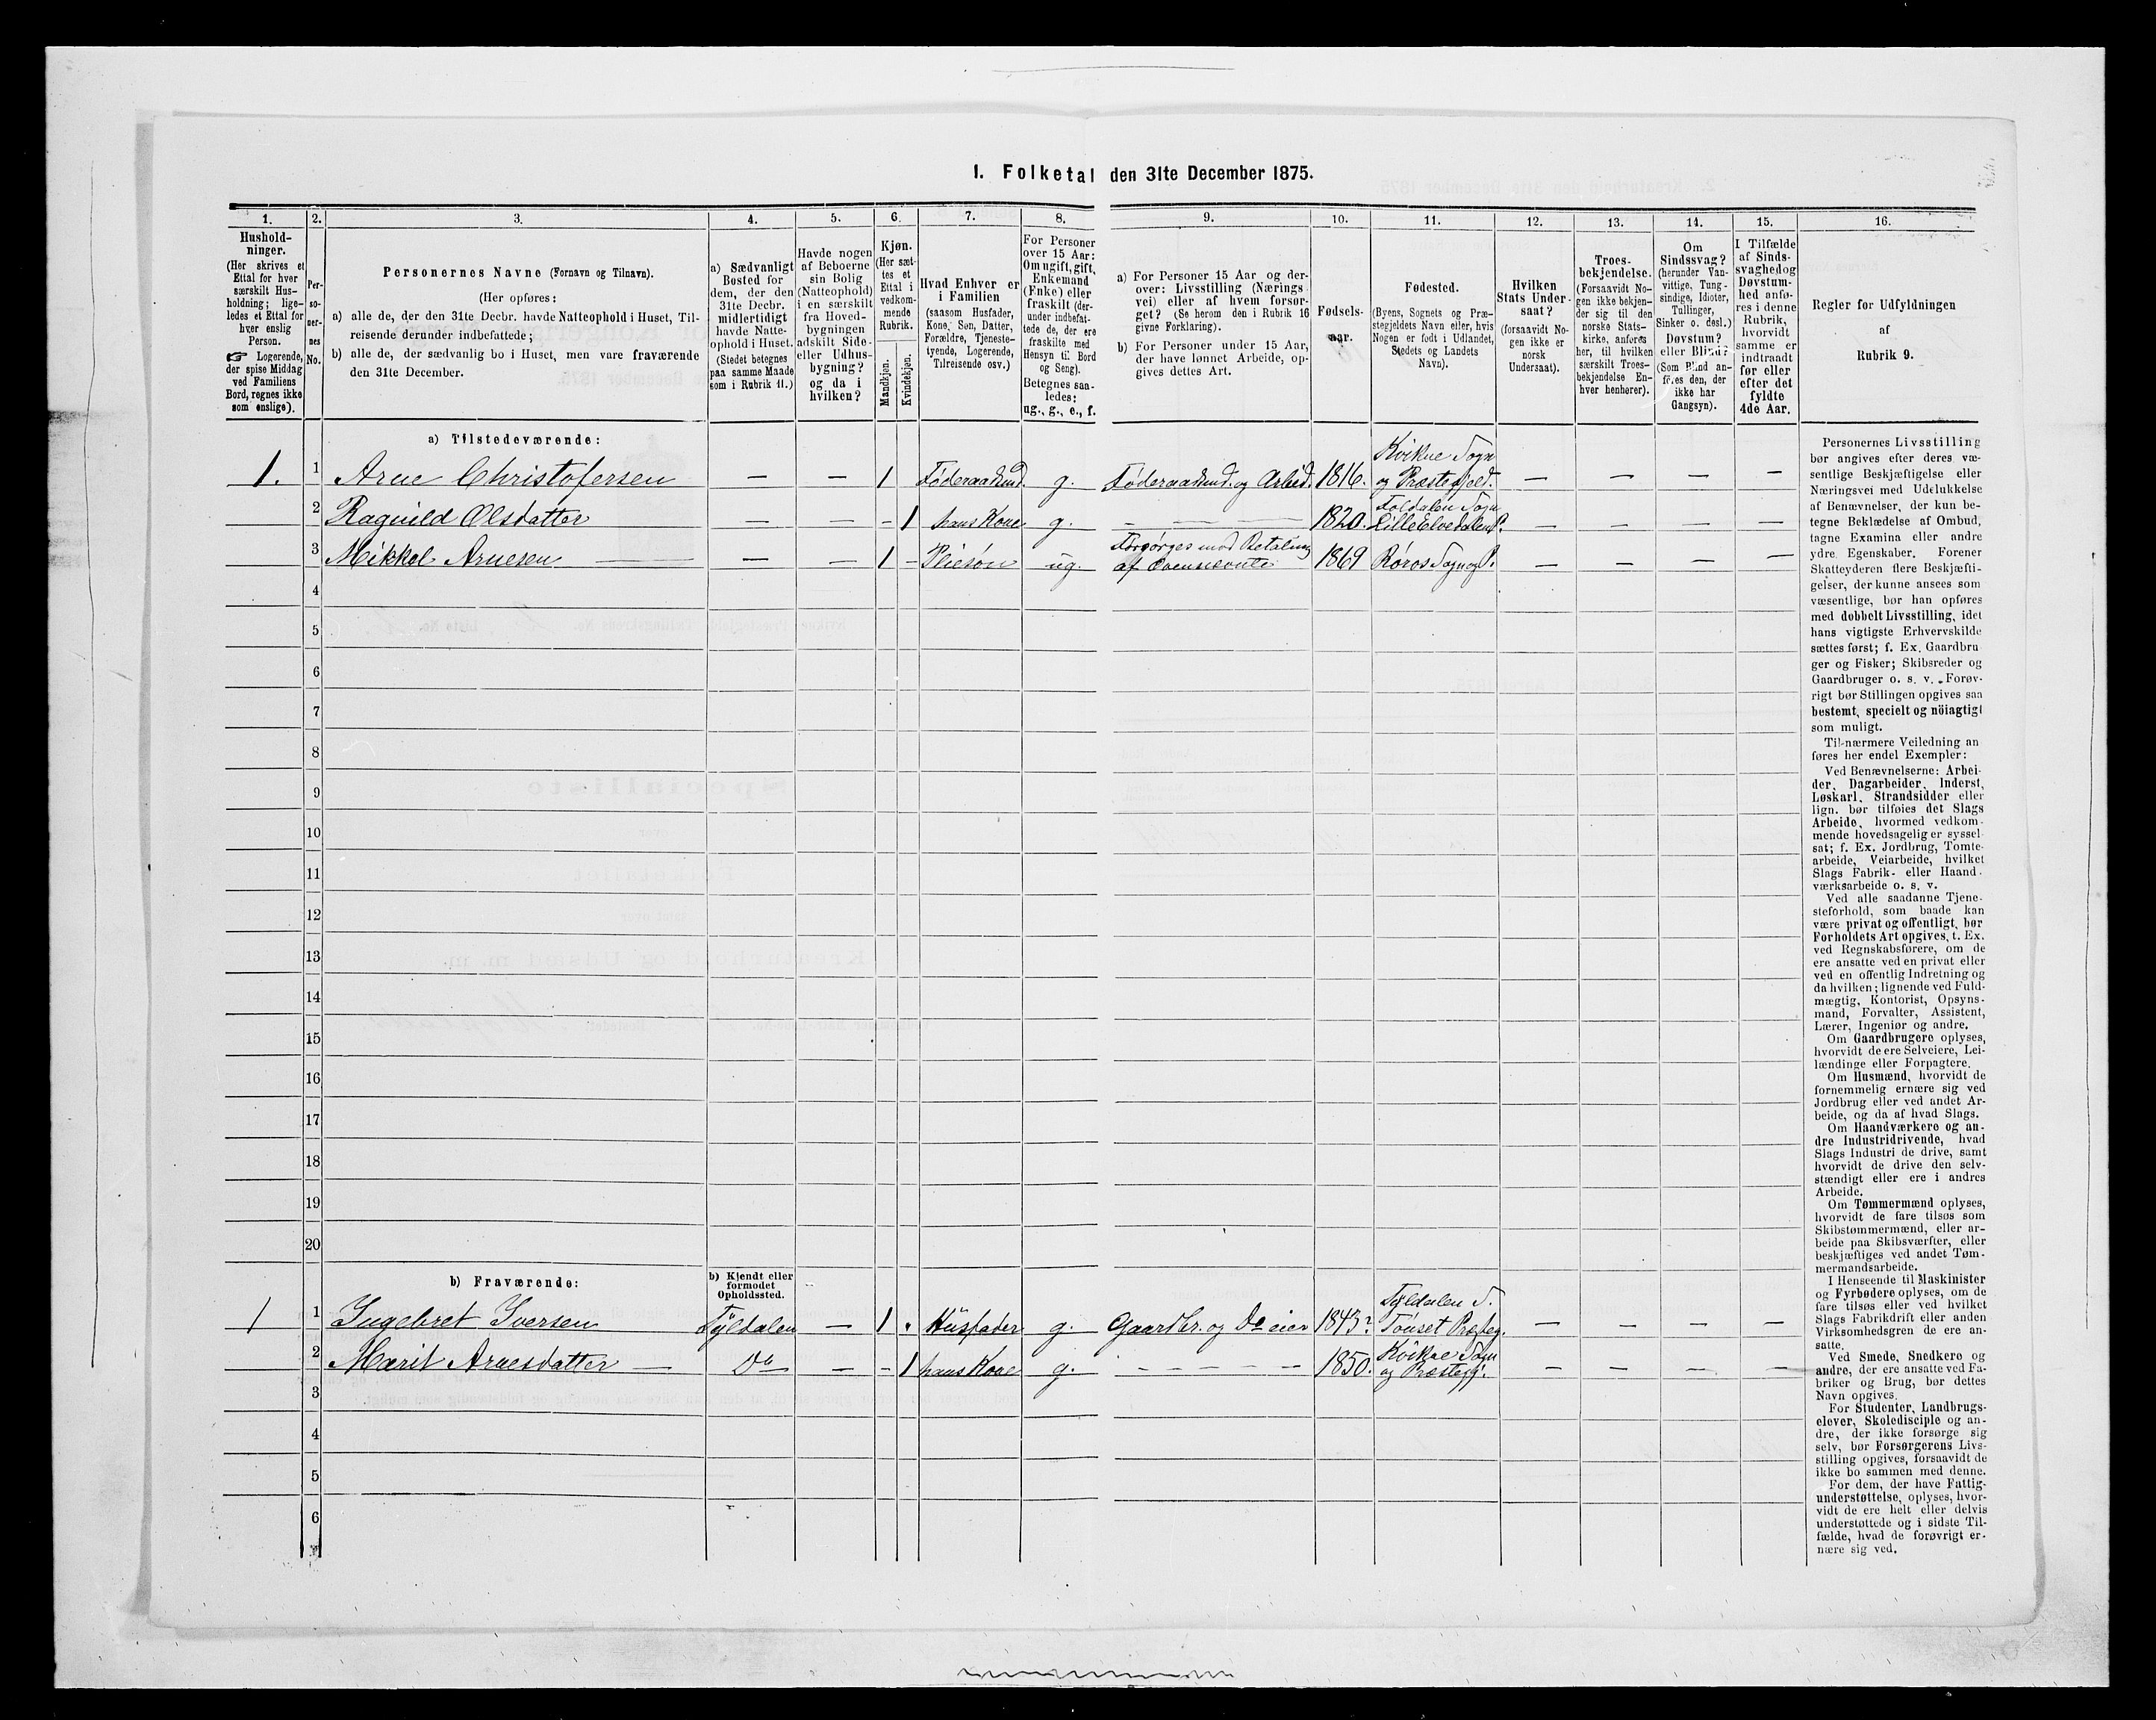 1. Folketal den 31te December 1875.
1. 2. 3. 4. 5. 6. 7. 8. 9. 10. 11. 12. 13. 14. 15. 16.
Hushold-
ninger.
(Her skrives et
Ettal for hver
særskilt Hus-
holdning; lige-
ledes et Ettal for
hver enslig
Person.
☞ Logerende,
der spise Middag
ved Familiens
Bord, regnes ikke
som enslige).
Per-
so-
ner-
nes
No.
Personernes Navne (Fornavn og Tilnavn).
(Her opføres:
a) alle de, der den 31te Decbr. havde Natteophold i Huset, Til-
reisende derunder indbefattede;
b) alle de, der sædvanlig bo i Huset, men vare fraværende
den 31te December.
a) Sædvanligt
Bosted for
dem, der den
31te Decbr.
midlertidigt
havde Natte-
ophold i Huset.
(Stedet betegnes
paa samme Maade
som i Rubrik 11.)
Havde nogen
af Beboerne
sin Bolig
(Natteophold)
i en særskilt
fra Hoved-
bygningen
adskilt Side-
eller Udhus-
bygning?
og da i
hvilken?
Kjøn.
(Her sæt-
tes et
Ettal i
vedkom-
mende
Rubrik.
Mandkjøn.
Kvindekjøn.
Hvad Enhver er
i Familien
(saasom Husfader,
Kone, Søn, Datter,
Forældre, Tjeneste-
tyende, Logerende,
Tilreisende osv.)
For Personer
over 15 Aar:
Om ugift, gift,
Enkemand
(Enke) eller
fraskilt (der-
under indbefat-
tede de, der ere
fraskilte med
Hensyn til Bord
og Seng).
Betegnes saa-
ledes:
ug., g., e., f.
a) For Personer 15 Aar og der-
over: Livsstilling (Nærings
vei) eller af hvem forsør-
get? (Se herom den i Rubrik 16
givne Forklaring).
b) For Personer under 15 Aar,
der have lønnet Arbeide, op-
gives dettes Art.
Fødsels-
aar.
Fødested.
(Byens, Sognets og Præ-
stegjeldets Navn eller, hvis
Nogen er født i Udlandet,
Stedets og Landets
Navn).
Hvilken
Stats Under-
saat?
(forsaavidt No-
gen ikke er
norsk
Undersaat).
Troes-
bekjendelse.
(Forsaavidt No-
gen ikke bekjen-
der sig til den
norske Stats-
kirke, anføres
her, til hvilken
særskilt Troes-
bekjendelse En-
hver henhører).
Om
Sindssvag?
(herunder Van-
vittige, Tung-
sindige, Idioter,
Tullinger,
Sinker o. desl.)
Døvstum?
eller Blind?
(Som Blind an-
føres den, der
ikke har
Gangsyn).
I Tilfælde
af Sinds-
svaghed og
Døvstum-
hed anfø-
res i denne
Rubrik,
hvorvidt
samme er
indtraadt
før eller
efter det
fyldte
4de Aar.
Regler for Udfyldningen
af
Rubrik 9.
a) Tilstedeværende:
1. 1 Arne Christofersen — — 1 Føderaadsmd. g. Føderaadsmd. og Arbeid. 1816. Kvikne Sogn og Præstegjeld. — — — —
2 Ragnild Olsdatter — — - 1 hans Kone g. - - - - 1820. Foldalen Sogn Lille Elvedalen P. — — — —
3 Mikkel Arnesen — — — 1 - Pliesøn ug. Forsørges mod Betaling af 1869 Røros Sogn og P. — — — —
4
5
6
7
8
9
10
11
12
13
14
15
16
17
18
19
20
b) Fraværende:
b) Kjendt eller
formodet
Opholdssted.
1 1 Ingebret Iversen Tyldalen — 1 . Husfader g. Gaardbr. og Do eier 1843? Tyldalen S. Tønset Præsteg. — — — —
2 Marit Arnesdatter — Do — - 1 hans Kone g. - - - - - 1850. Kvikne Sogn og Præstegj. — — — —
3
4
5
6
Personernes Livsstilling
bør angives efter deres væ-
sentlige Beskjæftigelse eller
Næringsvei med Udelukkelse
af Benævnelser, der kun be-
tegne Beklædelse af Ombud,
tagne Examina eller andre
ydre Egenskaber. Forener
Skatteyderen flere Beskjæfti-
gelser, der kunne ansees som
væsentlige, bør han opføres
med dobbelt Livsstilling, idet
hans vigtigste Erhvervskilde
sættes først; f. Ex. Gaardbru
ger og Fisker; Skibsreder og
Gaardbruger o. s. v. Forøv-
rigt bør Stillingen opgives saa
bestemt, specielt og nöiagtigt
som muligt.
Til nærmere Veiledning an
føres her endel Exempler:
Ved Benævnelserne: Arbei-
der, Dagarbeider, Inderst,
Løskarl, Strandsidder eller
lign. bør tilføies det Slags
Arbeide, hvormed vedkom-
mende hovedsagelig er syssel-
sat; f. Ex. Jordbrug, Tomte-
arbeide, Veiarbeide, hvilket
Slags Fabrik- eller Haand-
værksarbeide o. s. v.
Ved alle saadanne Tjene-
steforhold, som baade kan
være privat og offentligt, bør
Forholdets Art opgives, t. Ex.
ved Regnskabsførere, om de
ere ansatte ved en privat eller
ved en offentlig Indretning og
da hvilken; lignende ved Fuld-
mægtig, Kontorist, Opsyns-
mand, Forvalter, Assistent,
Lærer, Ingeniør og andre.
Om Gaardbrugere oplyses,
hvorvidt de ere Selveiere, Lei-
lændinge eller Forpagtere.
Om Husmænd, hvorvidt de
fornemmelig ernære sig ved
Jordbrug eller ved andet Ar-
beide, og da af hvad Slags.
Om Haandværkere og an-
dre Industridrivende, hvad
Slags Industri de drive, samt
hvorvidt de drive den selv-
stændigt eller ere i andres
Arbeide.
Om Tømmermænd oplyses,
hvorvidt de fare tilsøs som
Skibstømmermænd, eller ar-
beide paa Skibsværfter, eller
beskjæftiges ved andet Tøm-
mermandsarbeide.
I Henseende til Maskinister
og Fyrbødere oplyses, om de
fare tilsøs eller ved hvilket
Slags Fabrikdrift eller anden
Virksomhedsgren de ere an-
satte.
Ved Smede, Snedkere og
andre, der ere ansatte ved Fa-
briker og Brug, bør dettes
Navn opgives.
For Studenter, Landbrugs-
elever, Skoledisciple og an-
dre, der ikke forsørge sig
selv, bør Forsørgerens Livs-
stilling opgives, forsaavidt de
ikke bo sammen med denne.
For dem, der have Fattig-
understøttelse, oplyses, hvor-
vidt de ere helt eller delvis
understøttede og i sidste Til-
fælde, hvad de forøvrigt er-
nære sig ved.